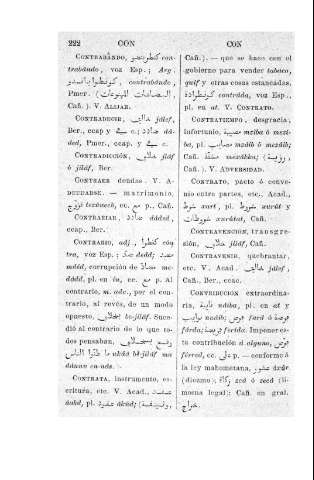 222 CON CON
CONTRABÁNDO, كنطربنضو con-
trabándo, voz Esp.; Arg
كونطرا باندو, contrabándo,
Pmer. (البضاعات الممنوعات,
Cañ.). V. ALIJAR.
CONTRADECIR, خالف jálaf,
Ber., ccap y ج; ضادد dá-
ded, Pmer., ccap. y ج c.
CONTRADICIÓN, خلاف jiláf
ó jiláf, Ber.
CONTRAER deudas. V. A-
DEUDARSE. — matrimonio,
تزوج tezáuech, cc. مع p. Cañ.
CONTRARIAR, ضادد dáded,
ccap., Ber.
CONTRARIO, adj.,
tra, voz Esp.; ضد dedd;
mdádd, corrupción de مضادد mo-
dádd, pl. en in, cc. مع p. Al
contrario, m. adv., por el con-
trario, al revés, de un modo
opuesto, بخلاف be-jiláf. Suce-
dió al contrario de lo que to-
dos pensaban,
ما ظنوا الناس
CONTRATA, instrumento, es-
critura, etc. V. Acad.,
âakd, pl. عقود âkúd; (وثيقة,
Cañ.). — que se hace con el
gobierno para vender tabaco,
quif y otras cosas estancadas,
كونطرادة contráda, voz Esp.,
pl. en at. V. CONTRATO.
CONTRATIEMPO, desgracia,
infortunio, مصيبة mziba ó mezi-
ba, pl. مصايب mzáib ó mezáib;
Cañ. (رزية,
Cañ.). V. ADVERSIDAD.
CONTRATO, pacto ó conve-
nio entre partes, etc., Acad.,
شرط xart, pl. شروط xurút y
شروطات xurútat, Cañ.
CONTRAVENCION, trasgre-
sión, خلاف jiláf, Cañ.
CONTRAVENIR, quebrantar,
etc. V. Acad. خالف jálef,
Cañ., Ber., ccac.
CONTRIBUCION extraordina-
ria, نايبة náiba, pl. en at y
نوايب nuáib; فرض fard ó
fárda; فريضة farída. Imponer es-
ta contribución á alguno, فرض
fárred, cc. على p. — conforme á
la ley mahometana, عشور âxúr
(diezmo); زكاة zcá ó zecá (li-
mosna legal); Cañ. en gral.
خراج.